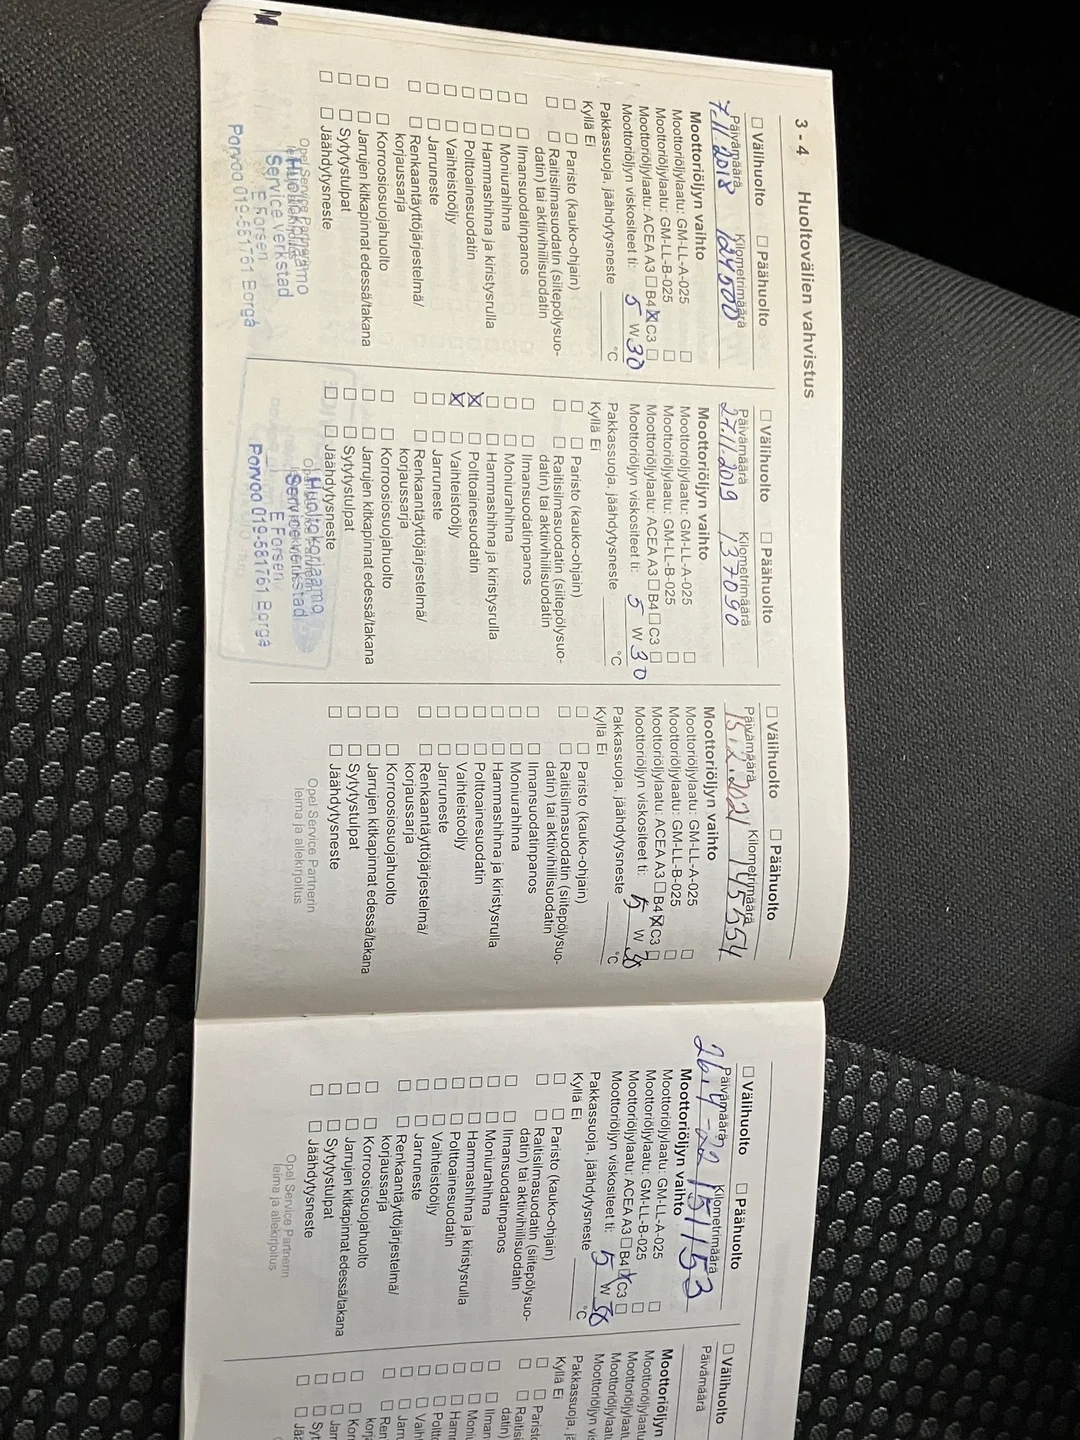 3 - 4 Huoltovälien vahvistus
☐ Välihuolto ☐ Päähuolto
Päivämäärä Kilometrimäärä
7.11.2018 124500
Moottoriöljyn vaihto
Moottoriöljylaatu: GM-LL-A-025 ☐
Moottoriöljylaatu: GM-LL-B-025 ☐
Moottoriöljylaatu: ACEA A3 ☐ B4 ☒ C3 ☐
Moottoriöljyn viskositeetti: 5 W 30
Pakkassuoja, jäähdytysneste °C
Kyllä Ei
☐ ☐ Paristo (kauko-ohjain)
☐ ☐ Raitisilmasuodatin (siitepölysuo-
datin) tai aktiivihiilisuodatin
☐ ☐ Ilmansuodatinpanos
☐ ☐ Moniurahihna
☐ ☐ Hammashihna ja kiristysrulla
☐ ☐ Polttoainesuodatin
☐ ☐ Vaihteistoöljy
☐ ☐ Jarruneste
☐ ☐ Renkaantäyttöjärjestelmä/
korjaussarja
☐ ☐ Korroosiosuojahuolto
☐ ☐ Jarrujen kitkapinnat edessä/takana
☐ ☐ Sytytystulpat
☐ ☐ Jäähdytysneste
Opel Service Partnerin
Service verkstad
E Forsen
Porvoo 019-581761 Borgå
☐ Välihuolto ☐ Päähuolto
Päivämäärä Kilometrimäärä
27.11.2019 137090
Moottoriöljyn vaihto
Moottoriöljylaatu: GM-LL-A-025 ☐
Moottoriöljylaatu: GM-LL-B-025 ☐
Moottoriöljylaatu: ACEA A3 ☐ B4 ☐ C3 ☐
Moottoriöljyn viskositeetti: 5 W 30
Pakkassuoja, jäähdytysneste °C
Kyllä Ei
☐ ☐ Paristo (kauko-ohjain)
☐ ☐ Raitisilmasuodatin (siitepölysuo-
datin) tai aktiivihiilisuodatin
☐ ☐ Ilmansuodatinpanos
☐ ☐ Moniurahihna
☐ ☐ Hammashihna ja kiristysrulla
☒ ☐ Polttoainesuodatin
☒ ☐ Vaihteistoöljy
☐ ☐ Jarruneste
☐ ☐ Renkaantäyttöjärjestelmä/
korjaussarja
☐ ☐ Korroosiosuojahuolto
☐ ☐ Jarrujen kitkapinnat edessä/takana
☐ ☐ Sytytystulpat
☐ ☐ Jäähdytysneste
Huoltokorjaamo
Service verkstad
E Forsen
Porvoo 019-581761 Borgå
☐ Välihuolto ☐ Päähuolto
Päivämäärä Kilometrimäärä
15.2.2021 145554
Moottoriöljyn vaihto
Moottoriöljylaatu: GM-LL-A-025 ☐
Moottoriöljylaatu: GM-LL-B-025 ☐
Moottoriöljylaatu: ACEA A3 ☐ B4 ☒ C3 ☐
Moottoriöljyn viskositeetti: 5 W 30
Pakkassuoja, jäähdytysneste °C
Kyllä Ei
☐ ☐ Paristo (kauko-ohjain)
☐ ☐ Raitisilmasuodatin (siitepölysuo-
datin) tai aktiivihiilisuodatin
☐ ☐ Ilmansuodatinpanos
☐ ☐ Moniurahihna
☐ ☐ Hammashihna ja kiristysrulla
☐ ☐ Polttoainesuodatin
☐ ☐ Vaihteistoöljy
☐ ☐ Jarruneste
☐ ☐ Renkaantäyttöjärjestelmä/
korjaussarja
☐ ☐ Korroosiosuojahuolto
☐ ☐ Jarrujen kitkapinnat edessä/takana
☐ ☐ Sytytystulpat
☐ ☐ Jäähdytysneste
Opel Service Partnerin
leima ja allekirjoitus
☐ Välihuolto ☐ Päähuolto
Päivämäärä Kilometrimäärä
26.4-22 151153
Moottoriöljyn vaihto
Moottoriöljylaatu: GM-LL-A-025 ☐
Moottoriöljylaatu: GM-LL-B-025 ☐
Moottoriöljylaatu: ACEA A3 ☐ B4 ☒ C3 ☐
Moottoriöljyn viskositeetti: 5 W 30
Pakkassuoja, jäähdytysneste °C
Kyllä Ei
☐ ☐ Paristo (kauko-ohjain)
☐ ☐ Raitisilmasuodatin (siitepölysuo-
datin) tai aktiivihiilisuodatin
☐ ☐ Ilmansuodatinpanos
☐ ☐ Moniurahihna
☐ ☐ Hammashihna ja kiristysrulla
☐ ☐ Polttoainesuodatin
☐ ☐ Vaihteistoöljy
☐ ☐ Jarruneste
☐ ☐ Renkaantäyttöjärjestelmä/
korjaussarja
☐ ☐ Korroosiosuojahuolto
☐ ☐ Jarrujen kitkapinnat edessä/takana
☐ ☐ Sytytystulpat
☐ ☐ Jäähdytysneste
Opel Service Partnerin
leima ja allekirjoitus
☐ Välihuolto
Päivämäärä
Moottoriöljyn
Moottoriöljylaatu
Moottoriöljylaatu
Moottoriöljylaatu
Moottoriöljyn vis
Pakkassuoja, jä
Kyllä Ei
☐ ☐ Paristo
☐ ☐ Raitisi
datin)
☐ ☐ Ilman
☐ ☐ Moni
☐ ☐ Ham
☐ ☐ Poltt
☐ ☐ Vaih
☐ ☐ Jarr
☐ ☐ Ren
korj
☐ ☐ Kor
☐ ☐ Jarr
☐ ☐ Syt
☐ ☐ Jää